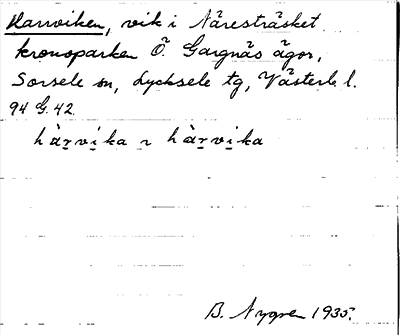 Harrviken, vik i Näresträsket
kronoparken Ö. Gargnäs ägor,
Sorsele sn, Lycksele tg, Västerb. l.
94 G. 42.
hàr̲vi̲ka ~ hàr̲vi̲ka
B. Nygren 1935.